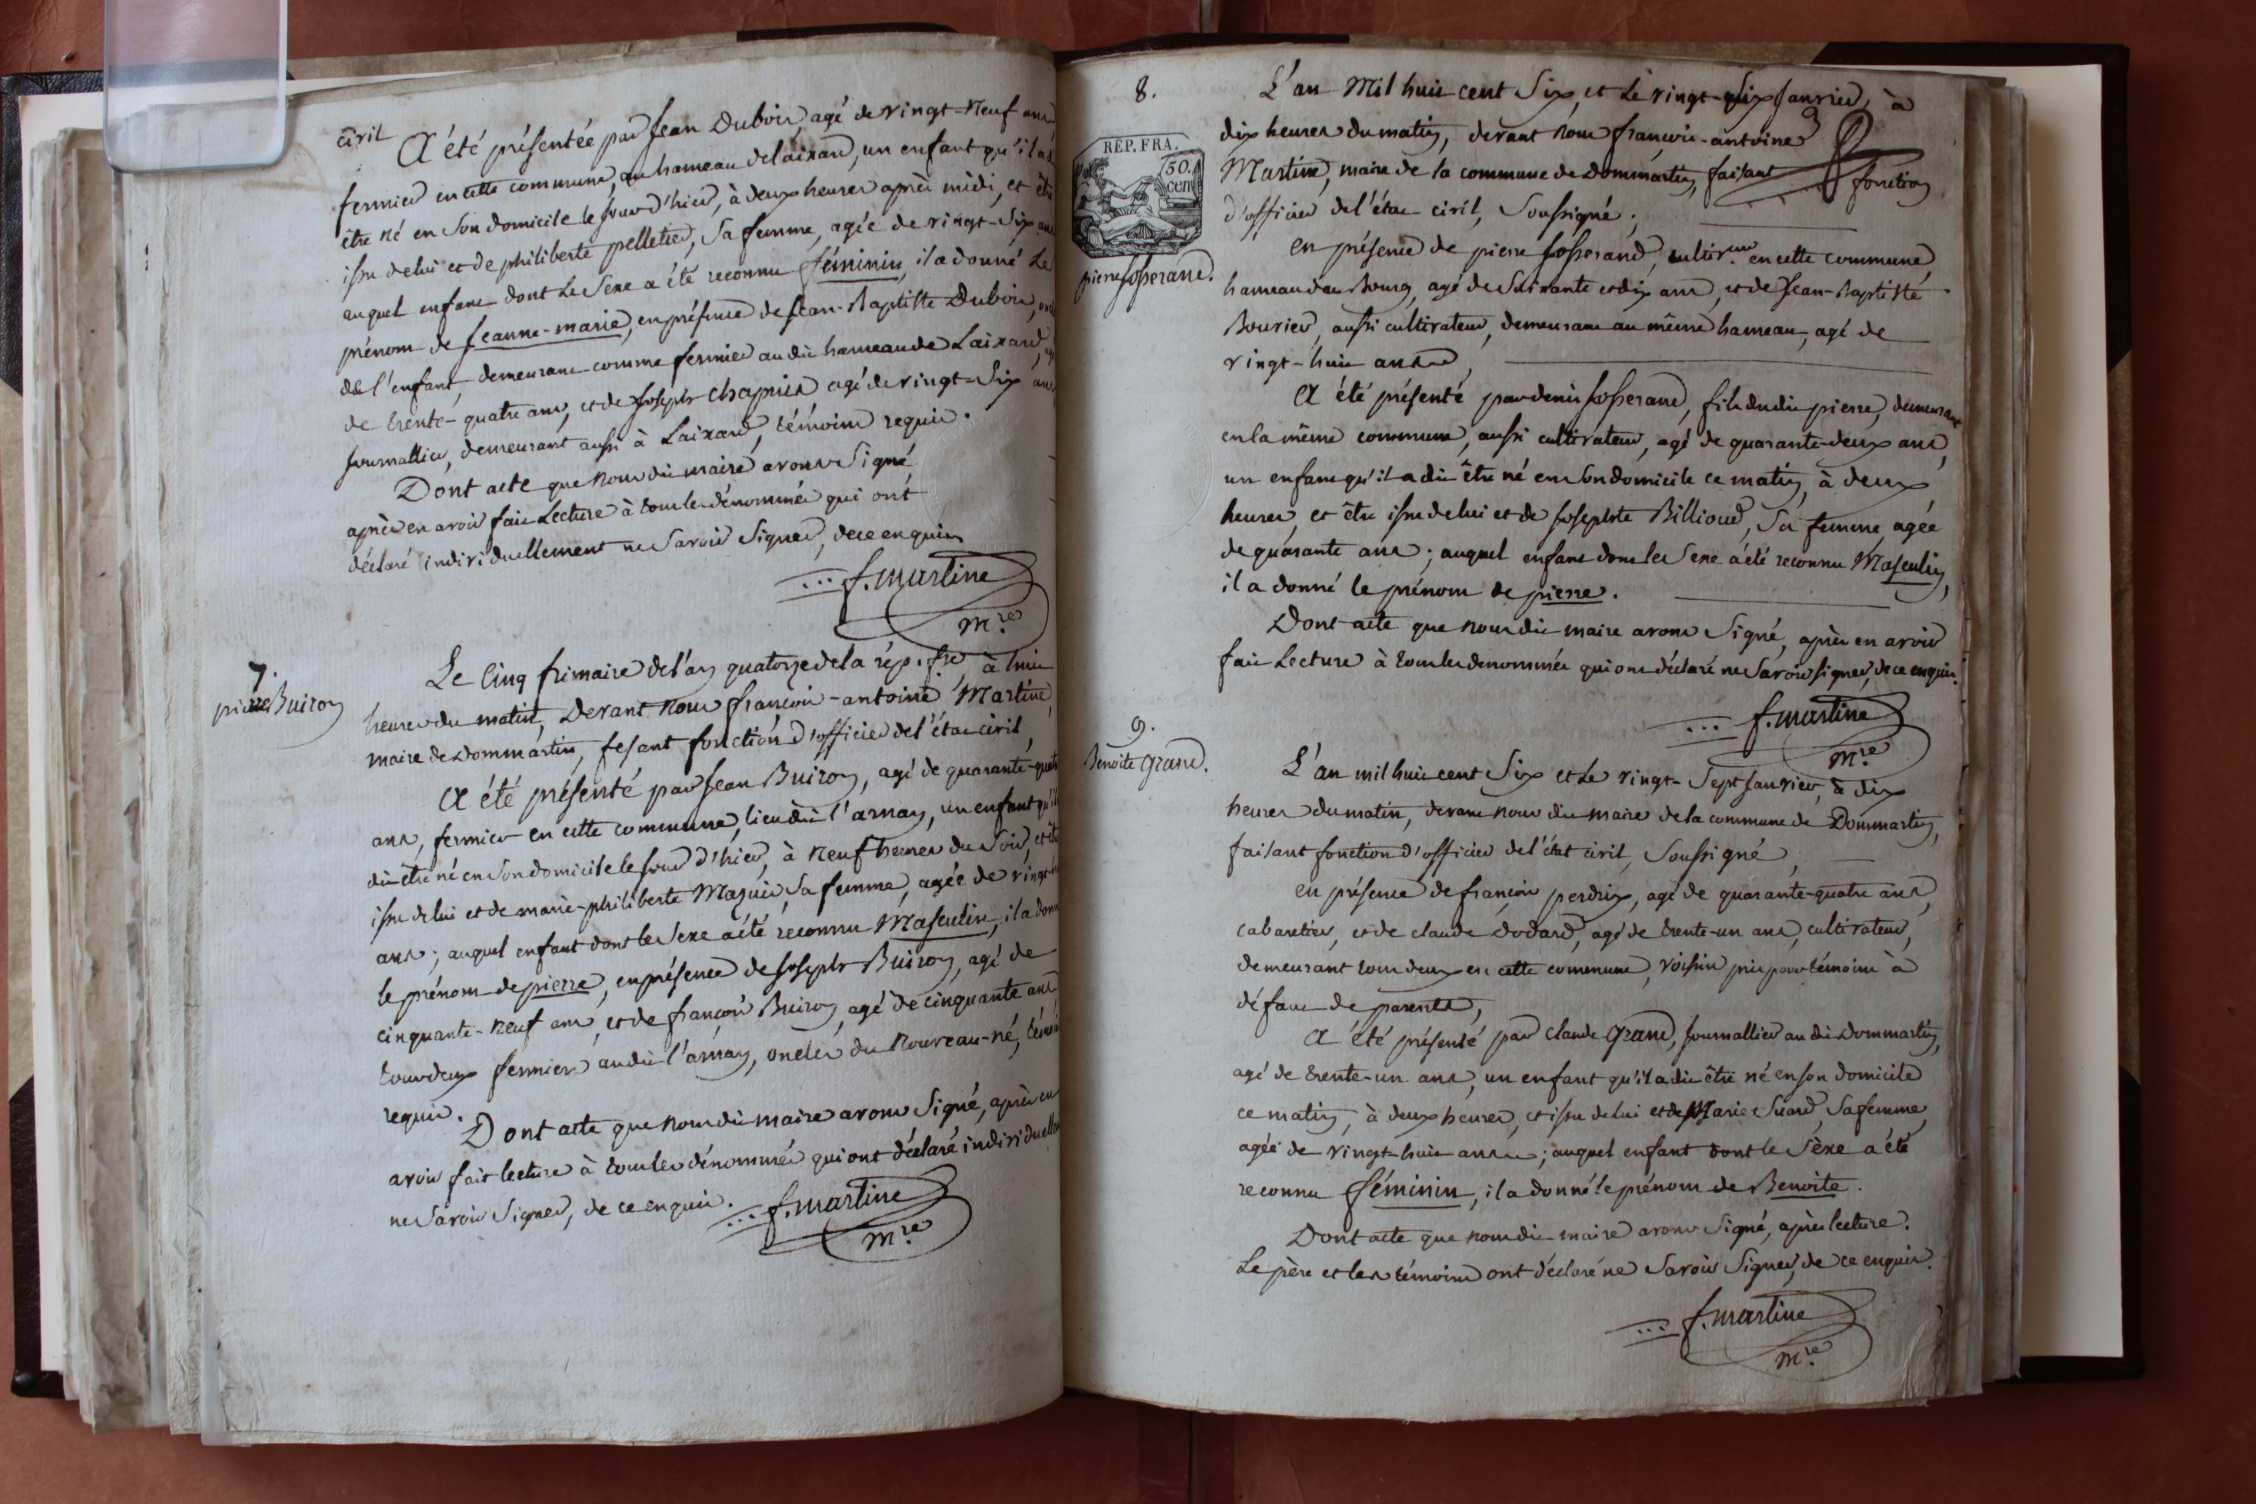 civil
A été présentée par Jean Dubois, agé de vingt-neuf ans
fermier en cette commune, au hameau de laixard, un enfant qu'il a
être né en son domicile le jour d'hier, à deux heures après midi, et être
issu de lui et de philiberte pelletier, sa femme, agée de vingt-six ans
auquel enfant dont le sexe a été reconnu féminin, il a donné le
prénom de jeanne-marie, en présence de jean-Baptiste Dubois,
de l'enfant, demeurant comme fermier au dit hameau de Laixard,
de trente-quatre ans, et de joseph chapuis agé de vingt-six ans
journallier, demeurant aussi à Laixard, témoins requis.
Dont acte que nous dit maire avons signé
après en avoir fait Lecture à tous les dénommés qui ont
déclaré individuellement ne savoir signer, de ce enquis
... f. martine
m.re
7.
pierre Buiron
Le cinq frimaire de l'an quatorze de la rép. fse à huit
heures du matin, Devant nous françois-antoine Martine
maire de Dommartin, fesant fonction d'officier de l'état civil,
A été présenté par Jean Buiron, agé de quarante-quatre
ans, fermier en cette commune, lieu dit l'arnay, un enfant qu'il
dit être né en son domicile le jour d'hier, à neuf heures du soir, et être
issu de lui et de marie-philiberte Mazuir, sa femme, agée de vingt-
ans ; auquel enfant dont le sexe a été reconnu Masculin, il a donné
le prénom de pierre, en présence de joseph Buiron, agé de
cinquante-neuf ans, et de françois Buiron, agé de cinquante ans
tous deux fermiers au dit l'arnay, oncles du nouveau-né, témoins
requis.
Dont acte que nous dit maire avons signé, après en
avoir fait lecture à tous les dénommés qui ont déclaré individuellement
ne savoir signer, de ce enquis.
... f. martine
m.re
8.
L'an Mil huit cent Six, et Le vingt-six Janvier, à
dix heures du matin, devant nous françois-antoine
Martine, maire de la commune de Dommartin, faisant fonction
d'officier de l'état civil, soussigné,
RÉP. FRA.
50.
cen
pierre josserand.
en présence de pierre josserand, cultiv.eur en cette commune
hameau du Bourg, agé de soixante et dix ans, et de jean-Baptiste
Bourier, aussi cultivateur, demeurant au même hameau, agé de
vingt-huit ans
A été présenté par denis josserand, fils du dit pierre, demeurant
en la même commune, aussi cultivateur, agé de quarante-deux ans,
un enfant qu'il a dit être né en son domicile ce matin, à deux
heures, et être issu de lui et de josephte Billioud, sa femme, agée
de quarante ans ; auquel enfant dont le sexe a été reconnu Masculin,
il a donné le prénom de pierre.
Dont acte que nous dit maire avons signé, après en avoir
fait Lecture à tous les denommés qui ont déclaré ne savoir signer, de ce enquis.
... f. martine
m.re
9.
Benoite Grand.
L'an mil huit cent Six et Le vingt-sept janvier, à dix
heures du matin, devant nous dit maire de la commune de Dommartin,
faisant fonction d'officier de l'état civil, soussigné,
en présence de françois perdrix, agé de quarante-quatre ans,
cabaretier, et de claude dodard, agé de trente-un ans, cultivateur,
demeurant tous deux en cette commune, voisins pris pour témoins à
défaut de parents,
A été présenté par Claude Grand, journallier au dit Dommartin,
agé de trente-un ans, un enfant qu'il a dit être né en son domicile
ce matin, à deux heures, et issu de lui et de Marie Suard, sa femme,
agée de vingt-huit ans ; auquel enfant dont le sèxe a été
reconnu féminin, il a donné le prénom de Benoite.
Dont acte que nous dit maire avons signé, après lecture.
Le père et les témoins ont déclaré ne savoir signer, de ce enquis.
... f. martine
m.re